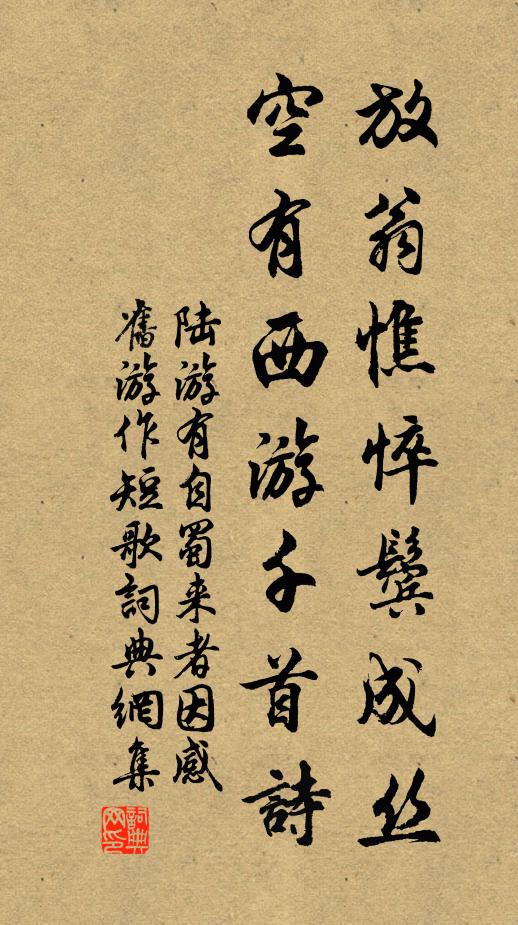 放翁憔悴鬓成丝
空有西游千首詩
陆游有自蜀来者因感
舊游作短歌詞典網集
詞典
网印